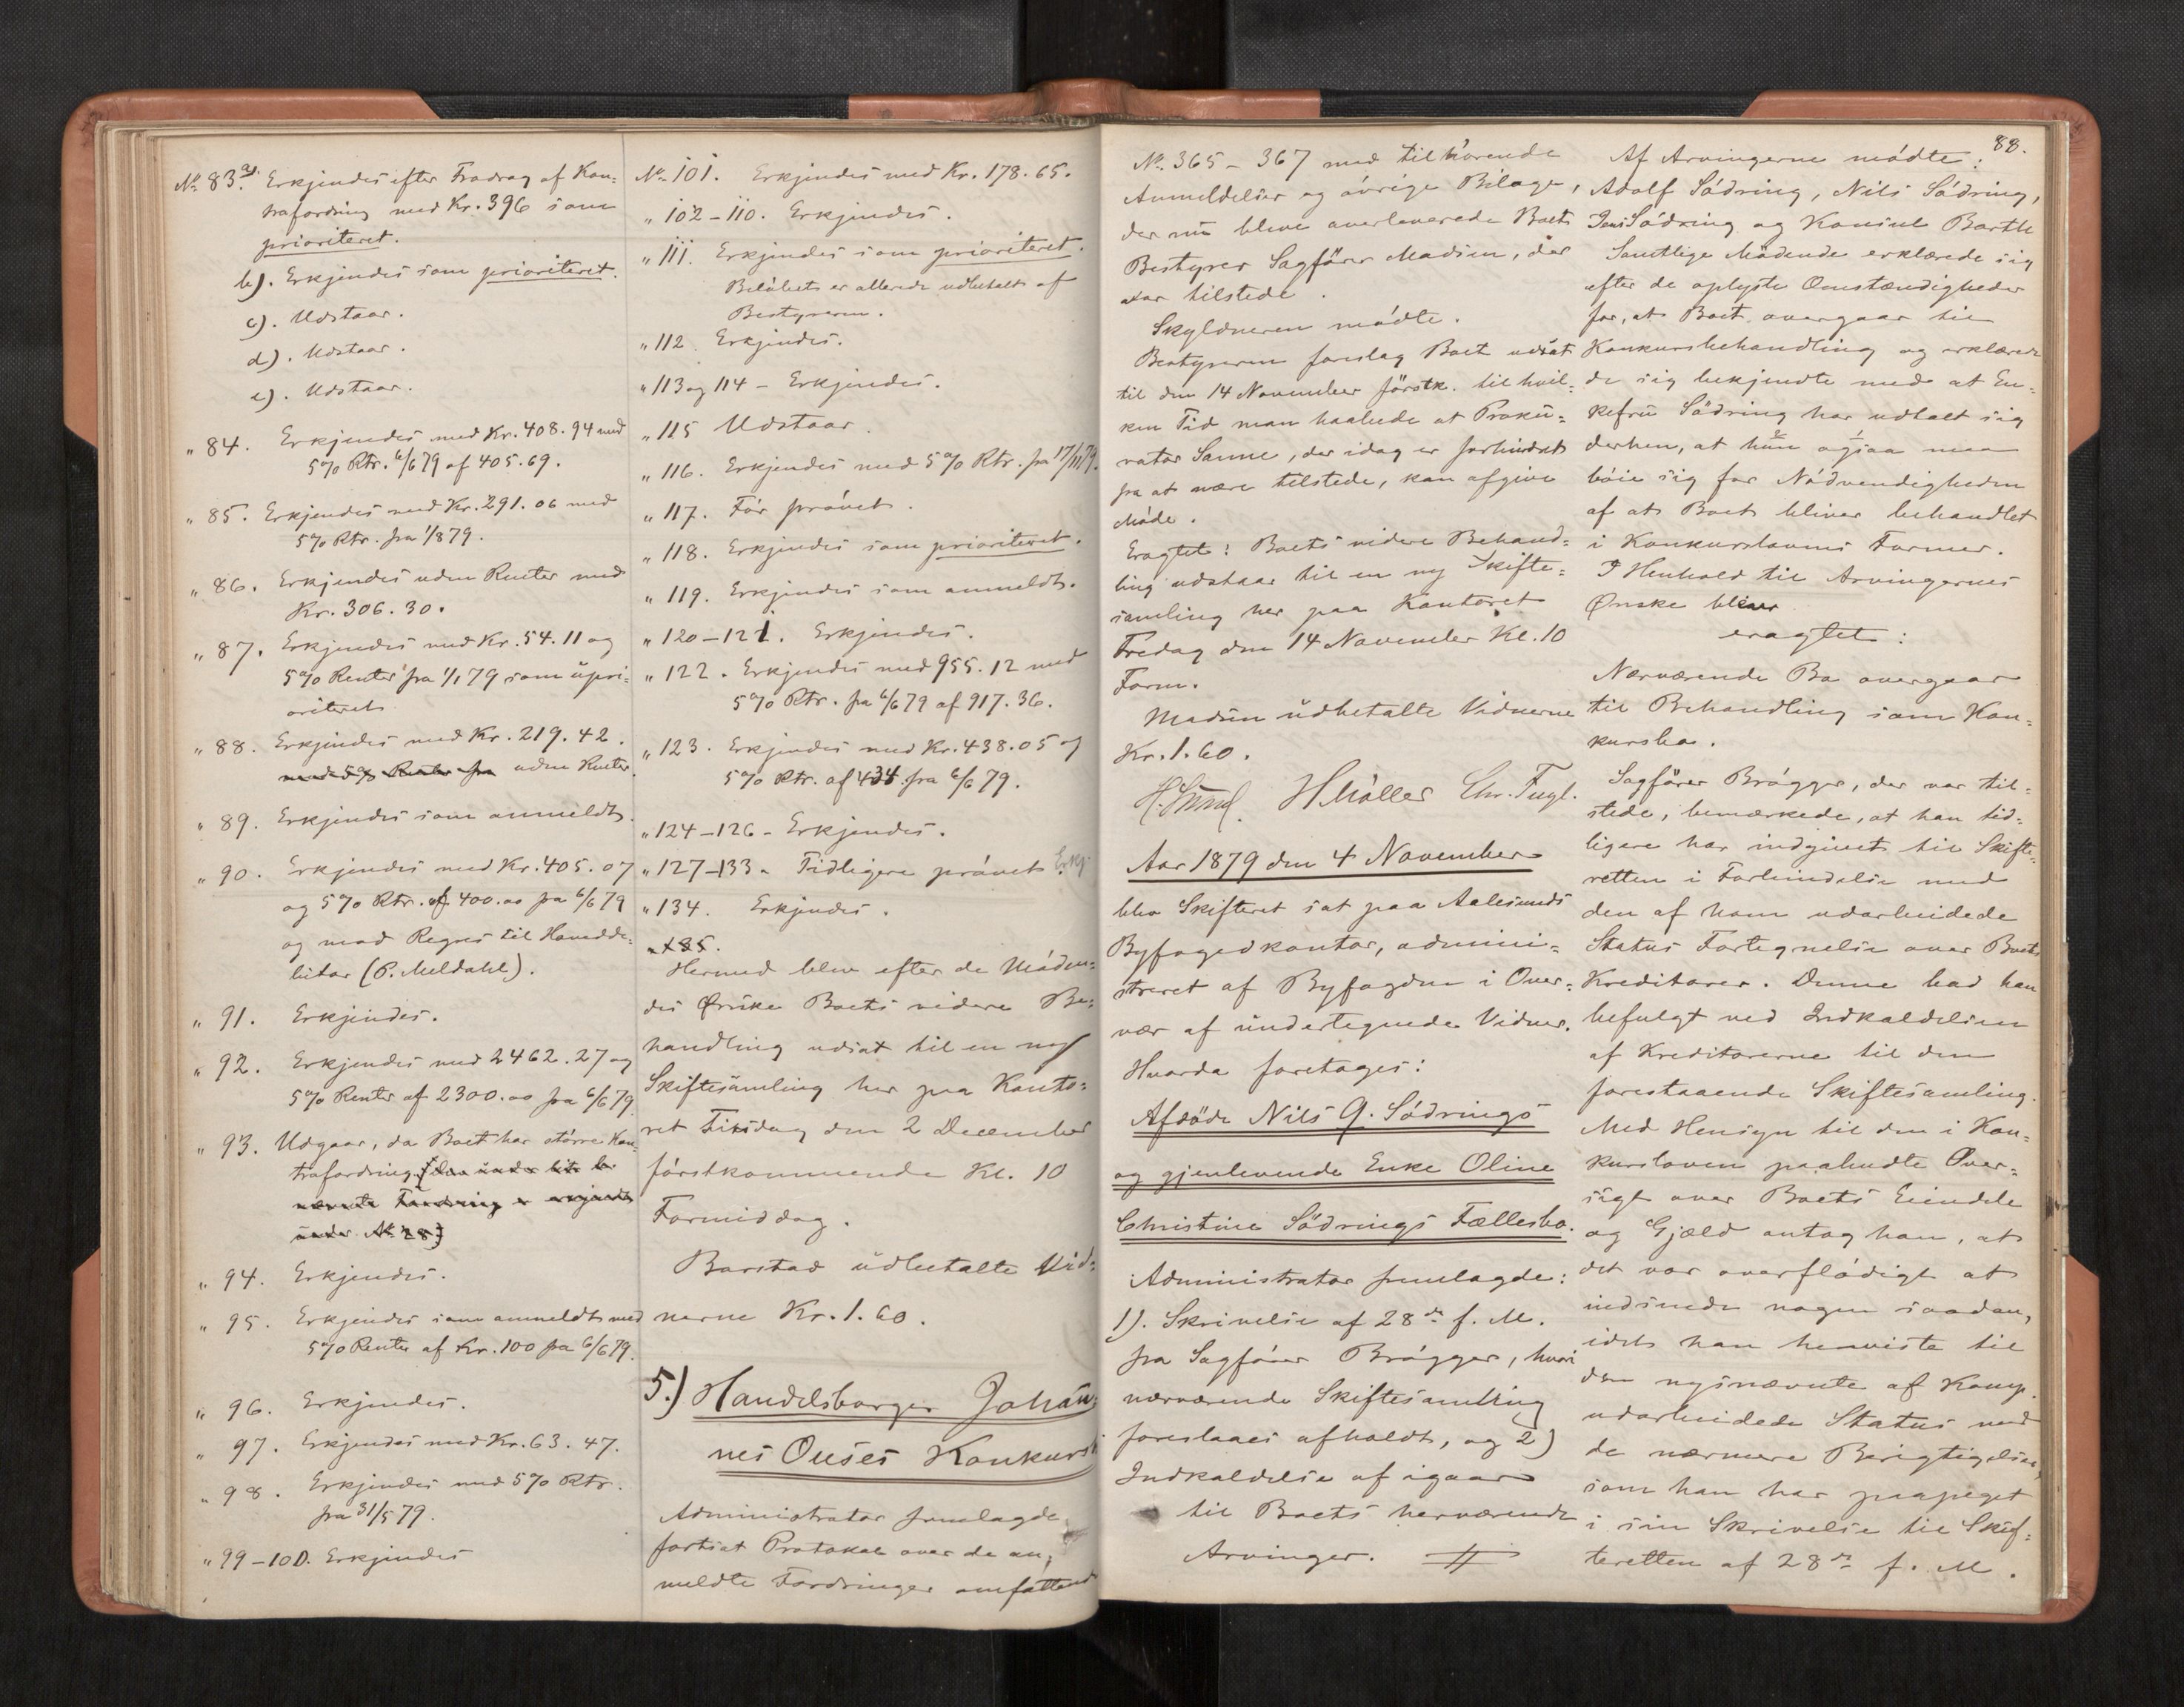 No 83 a). Erkjendes efter Fradrag af Kon-
trafordring med Kr. 396 som
prioriteret.
b). Erkjendes som prioriteret.
c). Udstaar.
d). Udstaar.
e). Udstaar.
" 84. Erkjendes med Kr. 408.94 med
5% Rtr. 6/6 79 af 405.69.
" 85. Erkjendes med Kr. 291.06 med
5% Rtr. fra 1/8 79.
" 86. Erkjendes uden Renter med
Kr. 306.30.
" 87. Erkjendes med Kr. 54.11 og
5% Renter fra 1/1 79 som upri-
oriteret
" 88. Erkjendes med Kr. 219.42.
med 5% Renter fra uden Renter.
" 89. Erkjendes som anmeldt.
" 90. Erkjendes med Kr. 405.07
og 5% Rtr. af 400.00 fra 6/6 79
og med Regres til Hovedde-
bitor (P. Meldahl).
" 91. Erkjendes.
" 92. Erkjendes med 2462.27 og
5% Renter af 2300.00 fra 6/6 79.
" 93. Udgaar, da Boet har større Kon-
trafordring (den under litr. b.
nævnte Fordring er erkjendt
under No 28)
" 94. Erkjendes.
" 95. Erkjendes som anmeldt med
5% Renter af Kr. 100 fra 6/6 79.
" 96. Erkjendes.
" 97. Erkjendes med Kr. 63.47.
" 98. Erkjendes med 5% Rtr.
fra 31/5 79.
" 99-100. Erkjendes
No 101. Erkjendes med Kr. 178.65.
" 102-110. Erkjendes.
" 111. Erkjendes som prioriteret.
Beløbet er allerede udbetalt af
Bestyreren.
" 112. Erkjendes.
" 113 og 114 - Erkjendes.
" 115 Udstaar.
" 116. Erkjendes med 5% Rtr. fra 17/11 79.
" 117. Før prøvet.
" 118. Erkjendes som prioriteret.
" 119. Erkjendes som anmeldt.
" 120-121. Erkjendes.
" 122. Erkjendes med 955.12 med
5% Rtr. fra 6/6 79 af 917.36.
" 123. Erkjendes med Kr. 438.05 og
5% Rtr. af 434 fra 6/6 79.
" 124-126 - Erkjendes.
" 127-133 - Tidligere prøvet Erkj.
" 134. Erkjendes.
" 135.
Hermed blev efter de Møden-
des Ønske Boets videre Be-
handling udsat til en ny
Skiftesamling her paa Konto-
ret Tirsdag den 2 December
førstkommende Kl. 10
Formiddag.
Barstad udbetalte Vid-
nerne Kr. 1.60.
5.) Handelsborger Johan-
nes Ouses Konkurs
Administrator fremlagde
fortsat Protokol over de an-
meldte Fordringer omfattende
88.
No 365-367 med tilhørende
Anmeldelser og øvrige Bilage,
der nu bleve overleverede Boets
Bestyrer Sagfører Madsen, der
var tilstede.
Skyldneren mødte.
Bestyreren foreslog Boet udsat
til den 14 November førstk. til hvil-
ken Tid man haabede at Proku-
rator Sanne, der idag er forhindret
fra at være tilstede, kan afgive
Møde.
Eragtet: Boets videre Behand-
ling udstaar til en ny Skifte-
samling her paa Kontoret
Fredag den 14 November Kl. 10
Form.
Madsen udbetalte Vidnerne
Kr. 1.60.
H. Møller Chr. Fugl.
Aar 1879 den 4 November
blev Skifteret sat paa Aalesunds
Byfogedkontor, admini-
streret af Byfogden i Over-
vær af undertegnede Vidner.
Hvorda foretoges:
Afdøde Nils G. Sødrings
og gjenlevende Enke Oline
Christine Sødrings Fællesbo.
Administrator fremlagde:
1). Skrivelse af 28de f. M.
fra Sagfører Brøgger, hvori
nærværende Skiftesamling
foreslaaes afholdt, og 2)
Indkaldelse af igaar
til Boets herværende
Arvinger.
Af Arvingerne mødte:
Adolf Sødring, Nils Sødring,
Jens Sødring og Konsul Barth
Samtlige Mødende erklærede sig
efter de oplyste Omstændigheder
for, at Boet overgaar til
Konkursbehandling og erklære-
de sig bekjendte med at En-
kefru Sødring har udtalt sig
derhen, at hun ogsaa maa
bøie sig for Nødvendigheden
af at Boet bliver behandlet
i Konkurslovens Former.
I Henhold til Arvingernes
Ønske bliver
eragtet:
Nærværende Bo overgaar
til Behandling som Kon-
kursbo.
Sagfører Brøgger, der var til-
stede, bemærkede, at han tid-
ligere har indgivet til Skifte-
retten i Forbindelse med
den af ham udarbeidede
Status Fortegnelse over Boets
Kreditorer. Denne bad han
befulgt ved Indkaldelsen
af Kreditorerne til den
forestaaende Skiftesamling.
Med Hensyn til den i Kon-
kursloven paabudte Over-
sigt over Boets Eiendele
og Gjæld antog han, at
det var overflødigt at
indsende nogen saadan,
idet han henviste til
den nysnævnte af Komp.
udarbeidede Status med
de nærmere Berigtigelser,
som han har paapeget
i sin Skrivelse til Skif-
teretten af 28de f. M.